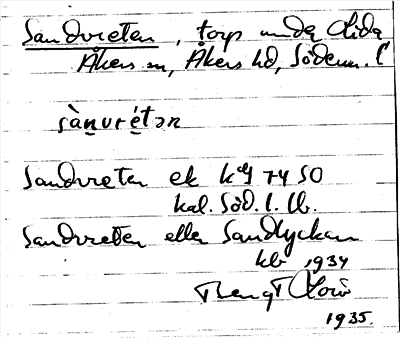 Sandvreten, torp under Lida
Åkers sn, Åkers hd, Söderm. l
sànvrétən
Sandvreten ek kbl 74 SO
kal. Söd. l. lb.
Sandvreten eller Sandlyckan
kb 1934
Bengt
1935.